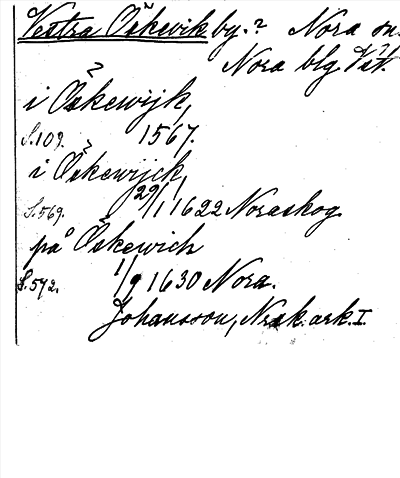 Vestra Öskevik by.? Nora sn.
Nora blg Vstl.
i Öskewijk,
S. 109. 1567.
i Öskewijck,
S. 569. 29/1 1622 Noraskog.
på Öskewich
S. 572. 1/9 1630 Nora.
Johansson, Norask. ark. I.